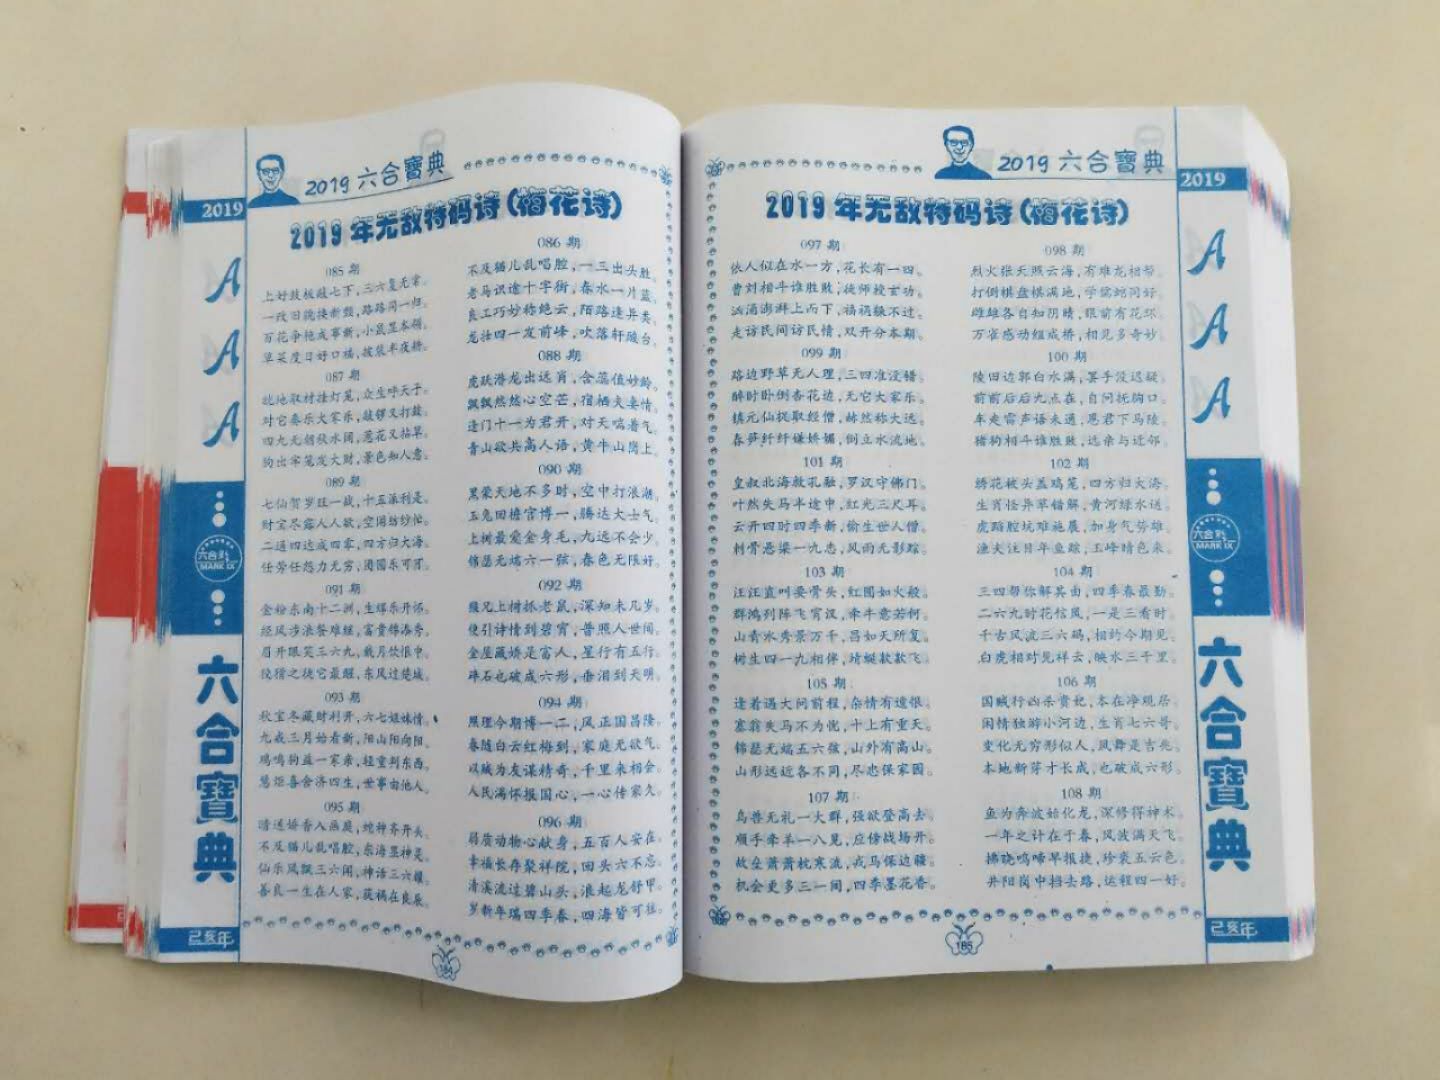 2019 六合寶典
2019
2019年无敌特码诗(梅花诗)
A
A
A
六合彩
MARK IX
六合寶典
己亥年
085 期
上好鼓板敲七下,三六复无常。
百花争艳成事新,小鼠显本领。
草菜度日好口福,披装半夜耕。
087 期
就地取材挂灯笼,众生呼天子。
对它奏乐大家乐,敲锣又打鼓。
狗出牢笼发大财,景色如人意。
089 期
七仙贺岁旺一战,十五派利是。
二通四达成四零,四方归大海。
任劳任怨力无穷,团圆乐可见。
091 期
眉开眼笑三六九,载月饮恨中。
狡猾之徒它最醒,东风过楚城。
093 期
秋宝冬藏财利开,六七姐妹情。
九成三月始看新,阳山阳向阳。
鸡鸣狗盗一家亲,轻重到东西。
095 期
不及猫儿乱唱腔,东海显神灵。
仙乐风飘三六闻,神话三六韵。
善良一生在人家,获祸在良辰。
086 期
不及猫儿乱唱腔,一三出头胜。
老马识途十字街,春水一片蓝。
良工巧妙称绝云,陌路逢异类。
龙壮四一发前峰,吹落轩辕台。
088 期
虎跃潜龙出远肖,含蕊值妙龄。
飘飘然然心空芒,宿栖夫妻情。
逢门十一为君开,对天喘着气。
青山欲共高人语,黄牛山岗上。
090 期
黑蒙天地不多时,空中打浪潮。
玉兔回檐宫博一,腾达大士气。
上树最爱金身毛,九远不会少。
锦瑟无端六一弦,春色无限好。
092 期
猴兄上树抓老鼠,深知未几岁。
便引诗情到碧宵,普照人世间。
金屋藏娇是富人,星行有五行。
碎石也破成六形,垂泪到天明。
094 期
照理今期博一二,风正国昌隆。
春随白云红梅到,家庭无欲气。
以诚为友谋精奇,千里来相会。
人民满怀报国心,一心传家久。
096 期
弱质动物心献身,五百人安在。
幸福长存聚祥院,回头六不忘。
清溪流过碧山头,浪起龙舒甲。
岁新年瑞四季春,四海皆可往。
184
2019 六合寶典
2019
2019年无敌特码诗(梅花诗)
097 期
依人似在水一方,花长有一四。
曹刘相斗谁胜败,徒师授玄功。
汹涌澎湃上而下,福祸躲不过。
走访民间访民情,双开分本期。
099 期
路边野草无人理,三四准没错。
醉时卧倒杏花边,无它大家乐。
镇元仙抚取经僧,赫然称大远。
春笋纤纤谦娇媚,倒立水流地。
101 期
皇叔北海救孔融,罗汉守佛门。
叶然失马半途中,红光三尺耳。
云开四时四季新,偷生世人僧。
刺骨悬梁一九志,风雨无影踪。
103 期
汪汪直叫要骨头,红围如火般。
群鸿列阵飞宵汉,牵牛意若何。
山青水秀景万千,昌如天所复。
树生四一九相伴,蜻蜓款款飞。
105 期
逢着遇大问前程,杂情有遗恨。
塞翁失马不为忧,十上有重天。
锦瑟无端五六弦,山外有高山。
山形远近各不同,尽忠保家园。
107 期
鸟兽无礼一大群,强欲登高去。
顺手牵羊一八见,应傍战场开。
故垒萧萧枕寒流,戎马保边疆。
机会更多三一间,四季墨花香。
098 期
烈火张天照云海,有难龙相帮。
打倒棋盘棋满地,学儒蛇同好。
雌雄各自知阴晴,眼前有花坏。
万雀感动组成桥,相见多奇妙。
100 期
陵四边郭白水满,罢手没迟疑。
前前后后九点在,自问抚胸口。
车夹雷声语未通,恩君下马陵。
猪狗相斗谁胜败,选亲与近邻。
102 期
绣花被头盖鸡笔,四方归大海。
生肖怪异草错解,黄河绿水送。
虎蹈腔坑难施展,加身气势雄。
渔夫注目年鱼踪,玉峰晴色来。
104 期
三四帮你解其曲,四季春最勤。
二六九时花信风,一是三看时。
千古风流三六码,相约今期见。
白虎相对见祥云,映水三千里。
106 期
国贼行凶杀贵妃,本在净观居。
闲情独游小河边,生肖七六哥。
变化无穷形似人,凤舞是吉兆。
本地新芽才长成,也破成六形。
108 期
鱼为奔波始化龙,深修得神术。
一年之计在于春,风波满天飞。
拂晓鸣啼早报捷,珍裘五云色。
井阳岗中挡去路,运程四一好。
185
A
A
A
六合彩
MARK IX
六合寶典
己亥年